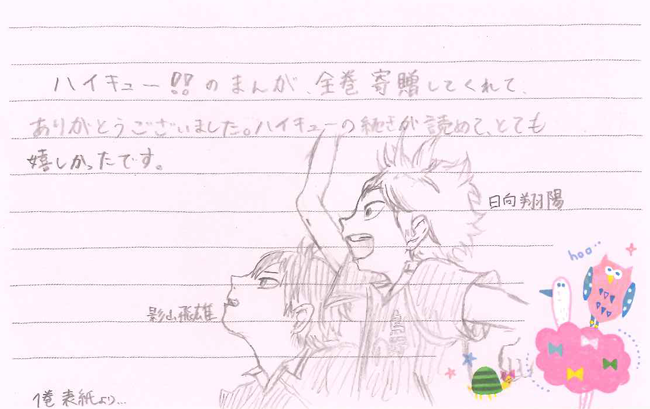 ハイキュー!!のまんが、全巻寄贈してくれて、
ありがとうございました。ハイキューの続きが読めて、とても
嬉しかったです。
日向翔陽
hoo..
影山飛雄
1巻表紙より...